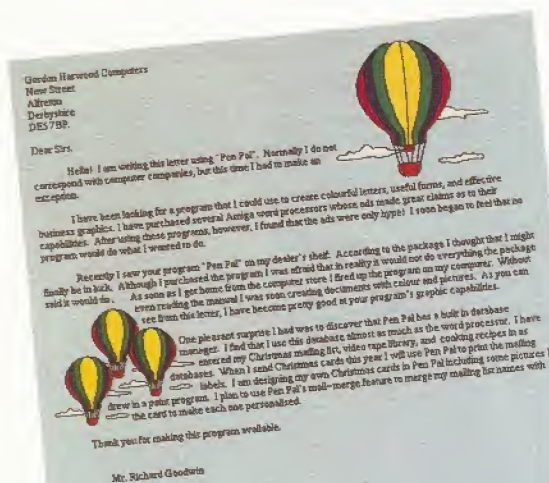 Gordon Harwood Computers
New Street
Alfreton
Derbyshire
DE5 7BP.
Dear Sirs,
Hello! I am writing this letter using "Pen Pal". Normally I do not
correspond with computer companies, but this time I had to make an
exception.
I have been looking for a program that I could use to create colourful letters, useful forms, and effective
business graphics. I have purchased several Amiga word processors whose ads made great claims as to their
capabilities. After using these programs, however, I found that the ads were only hype! I soon began to feel that no
program would do what I wanted to do.
Recently I saw your program "Pen Pal" on my dealer's shelf. According to the package I thought that I might
finally be in luck. Although I purchased the program I was afraid that in reality it would not do everything the package
said it would do. As soon as I got home from the computer store I fired up the program on my computer. Without
even reading the manual I was soon creating documents with colour and pictures. As you can
see from this letter, I have become pretty good at your program's graphic capabilities.
One pleasant surprise I had was to discover that Pen Pal has a built in database
manager. I find that I use this database almost as much as the word processor. I have
entered my Christmas mailing list, video tape library, and cooking recipes in as
databases. When I send Christmas cards this year I will use Pen Pal to print the mailing
labels. I am designing my own Christmas cards in Pen Pal including some pictures I
drew in a paint program. I plan to use Pen Pal's mail-merge feature to merge my mailing list names with
the card to make each one personalised.
Thank you for making this program available.
Mr. Richard Goodwin